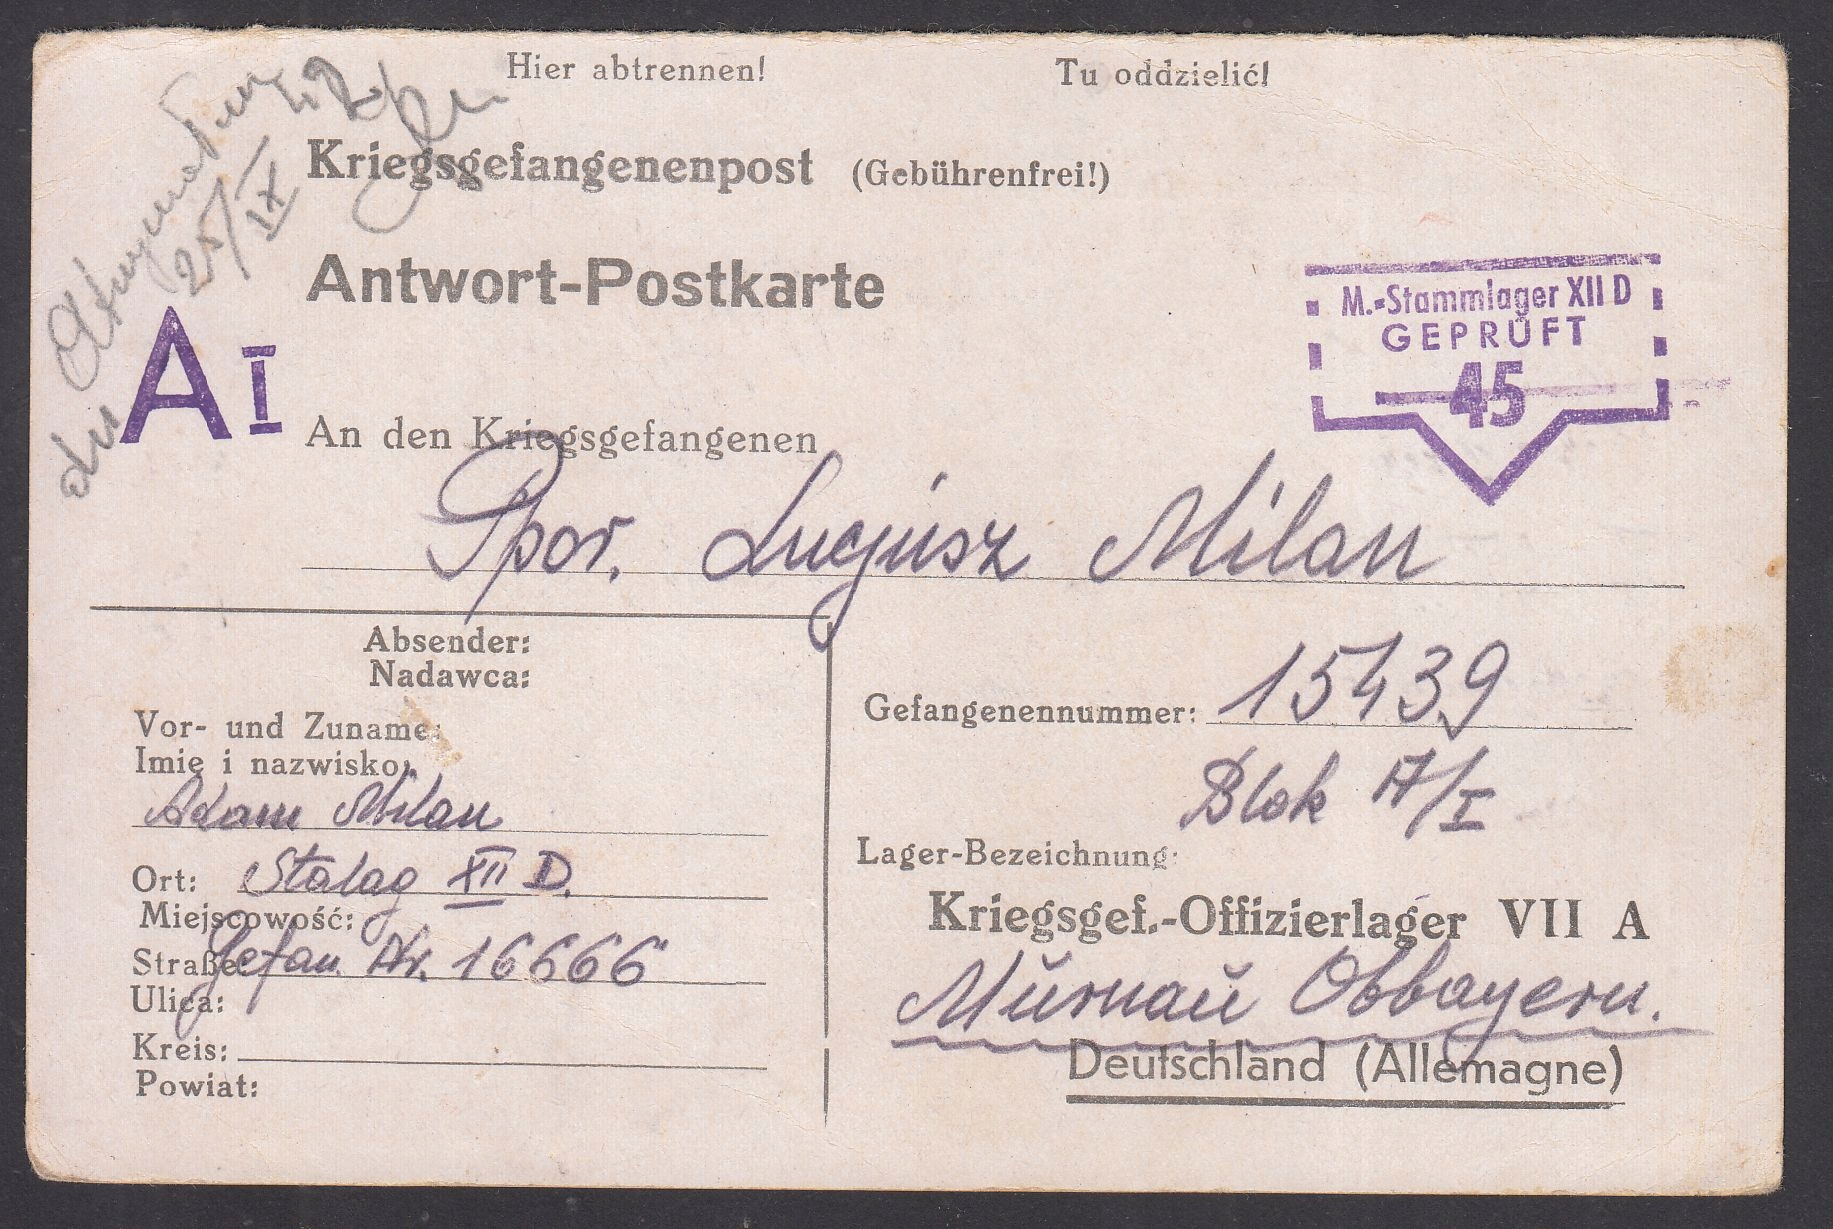 Hier abtrennen! Tu oddzielić!
Otrzymałem
dn 25/IX 42
Kriegsgefangenenpost (Gebührenfrei!)
Antwort-Postkarte
M.-Stammlager XII D
GEPRÜFT
45
A I
An den Kriegsgefangenen
Ppor. Lucjusz Milan
Absender:
Nadawca:
Vor- und Zuname:
Imię i nazwisko:
Adam Milan
Ort: Stalag XII D.
Miejscowość:
Straße: Gefan. Nr. 16666
Ulica:
Kreis:
Powiat:
Gefangenennummer: 15439
Blok A/I
Lager-Bezeichnung:
Kriegsgef.-Offizierlager VII A
Murnau Obbayern.
Deutschland (Allemagne)